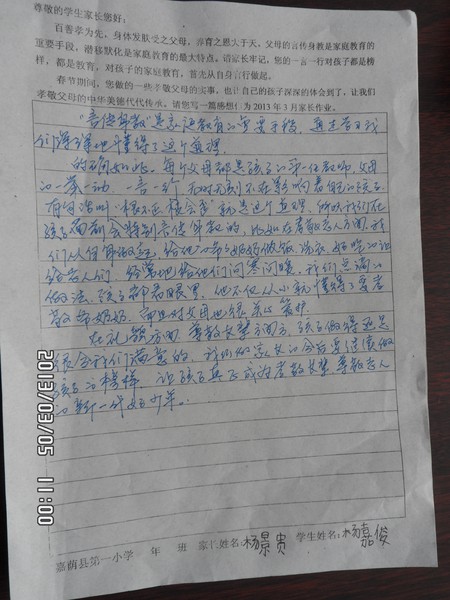 尊敬的学生家长您好：
百善孝为先，身体发肤受之父母，养育之恩大于天，父母的言传身教是家庭教育的
重要手段，潜移默化是家庭教育的最大特点。请家长牢记，您的一言一行对孩子都是榜
样，都是教育，对孩子的家庭教育，首先从自身言行做起。
春节期间，您做的一些孝敬父母的实事，也让自己的孩子深深的体会到了，让我们
孝敬父母的中华美德代代传承。请您写一篇感想作为2013年3月家长作业。
"言传身教"是家庭教育的重要手段，通过
们深深地懂得了这个道理。
的确如此，每个父母都是孩子的第一任教师，父母
的一举一动，一言一行，无时无刻不在影响着自己的孩子。
有句话叫"根不正梢会歪"就是这个道理，所以我们在
孩子面前会特别言传身教的，比如在孝敬老人方面，我
们以身作则，给他的爷爷奶奶做饭、洗衣，好吃的让
给老人们，经常地给他们问寒问暖，我们点滴的
做法，孩子都看眼里，他不但从小就懂得了要孝
敬爷爷奶奶，而且对父母也很关心爱护。
在礼貌方面，尊敬长辈方面，孩子做得还是
很令我们满意的，我们做家长的会继续做
孩子的榜样，让孩子真正成为孝敬长辈、尊敬老人
的新一代好少年。
嘉荫县第一小学 年 班 家长姓名：杨景贵 学生姓名：杨嘉俊
2013/03/05 11:00